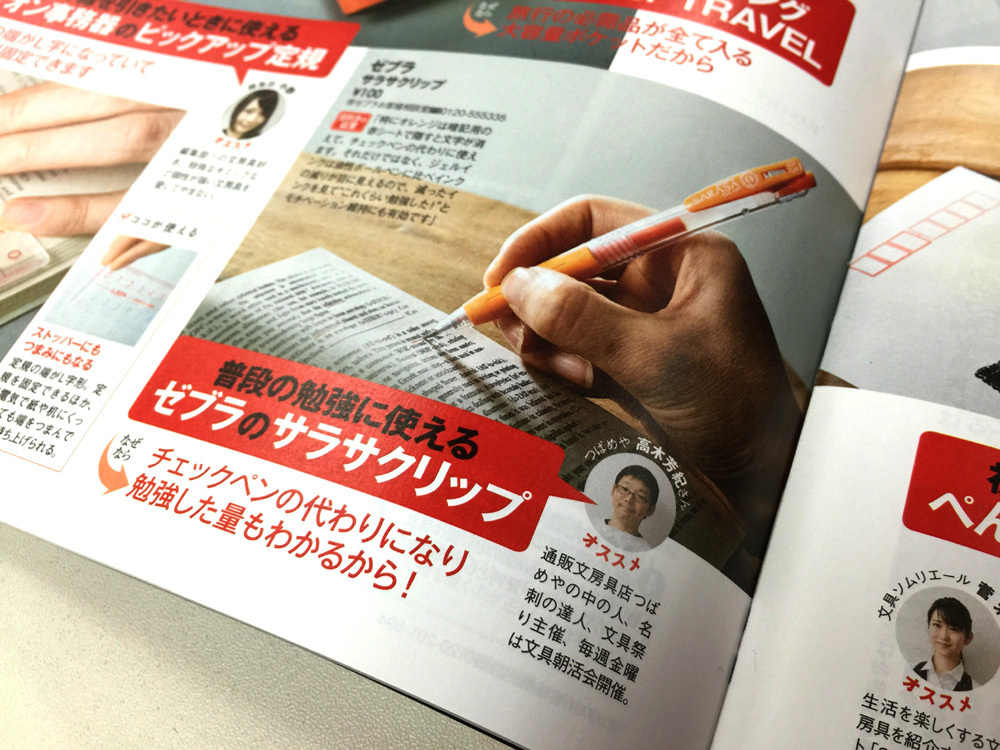 を引きたいときに使える
オン事務器のピックアップ定規
の端がL字になっていて
固定できます
オススメ
ココが使える
ストッパーにも
つまみにもなる
定規の端がL字形。定
規を固定できるほか、
電気で紙や机にくっ
ても端をつまんで
持ち上げられる。
なぜなら
旅行の必需品が全て入る
大容量ポケットだから
TRAVEL
ゼブラ
サラサクリップ
¥100
0120-555335
「特にオレンジは暗記用の
赤シートで隠すと文字が消
えて、チェックペンの代わりに使え
ます。それだけではなく、ジェルイ
ンクは油性ボールペンに比べインク
の減りが目に見えるので、減ったイ
ンクを見て“これぐらい勉強した！”と
モチベーション維持にも有効です」
SARASA
普段の勉強に使える
ゼブラのサラサクリップ
なぜなら
チェックペンの代わりになり
勉強した量もわかるから！
つばめや 高木芳紀さん
オススメ
通販文房具店つば
めやの中の人、名
刺の達人、文具祭
り主催、毎週金曜
は文具朝活会開催。
ぺん
文具ソムリエール 菅
オススメ
生活を楽しくする文
房具を紹介